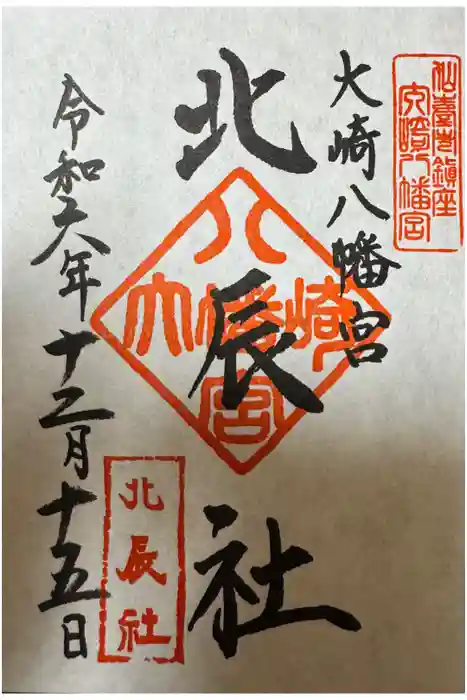 仙臺市鎮座
大崎八幡宮
大崎八幡宮
北辰社
八
大幡崎
宮
北辰社
令和六年十二月十五日